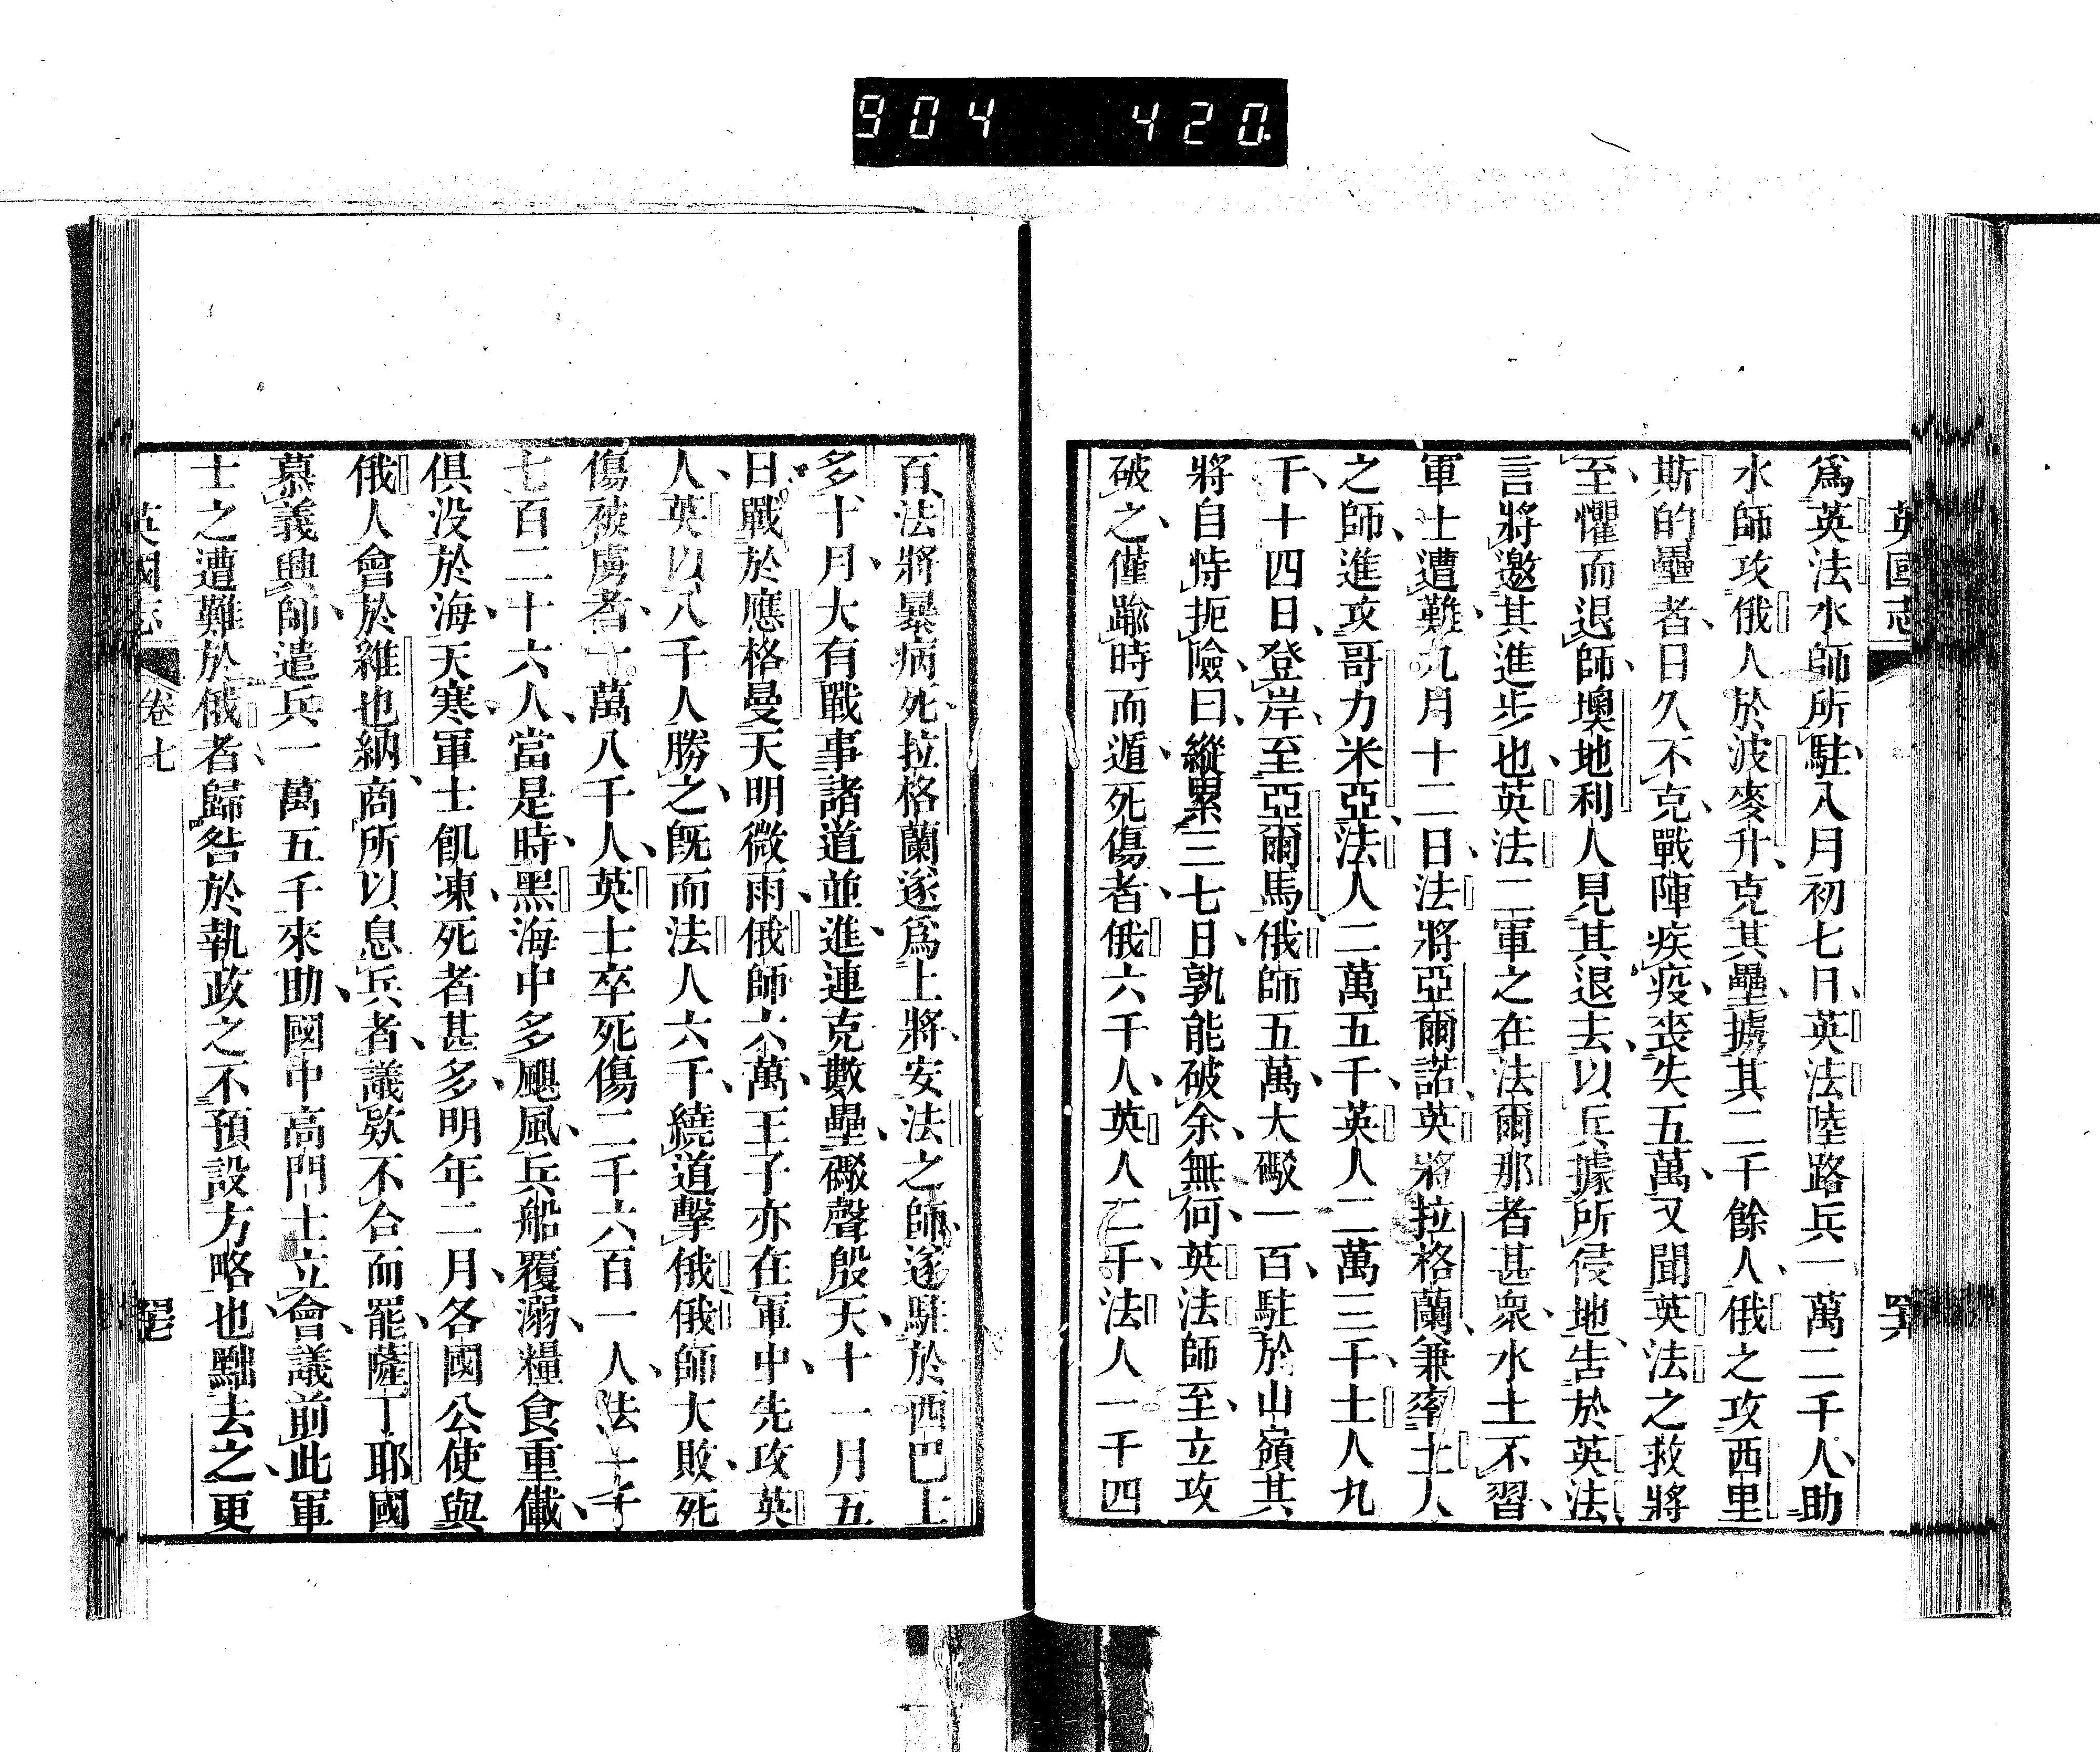 904 420
英國志
爲英法水師所駐八月初七日英法陸路兵一萬二千人助
水師攻俄人於波麥升克其壘擄其二千餘人俄之攻西里
斯的壘者日久不克戰陣疾疫喪失五萬又聞英法之救將
至懼而退師墺地利人見其退去以兵據所侵地告於英法
言將邀其進步也英法二軍之在法爾那者甚衆水土不習
軍士遭難九月十二日法將亞爾諾英將拉格蘭兼率土人
之師進攻哥力米亞法人二萬五千英人二萬三千土人九
千十四日登岸至亞爾馬俄師五萬大礮一百駐於山嶺其
將自恃扼險曰縱累三七日孰能破余無何英法師至立攻
破之僅踰時而遁死傷者俄六千人英人二千法人一千四
百法將暴病死拉格蘭遂爲上將安法之師遂駐於西巴土
多十月大有戰事諸道並進連克數壘礮聲殷天十一月五
日戰於應格曼天明微雨俄師六萬王子亦在軍中先攻英
人英以八千人勝之既而法人六千繞道擊俄俄師大敗死
傷被虜者一萬八千人英士卒死傷二千六百一人法一千
七百二十六人當是時黑海中多颶風兵船覆溺糧食重儎
俱没於海天寒軍士飢凍死者甚多明年二月各國公使與
俄人會於維也納商所以息兵者議欵不合而罷薩丁耶國
慕義興師遣兵一萬五千來助國中高門士立會議前此軍
士之遭難於俄者歸咎於執政之不預設方略也黜去之更
英國志 卷七